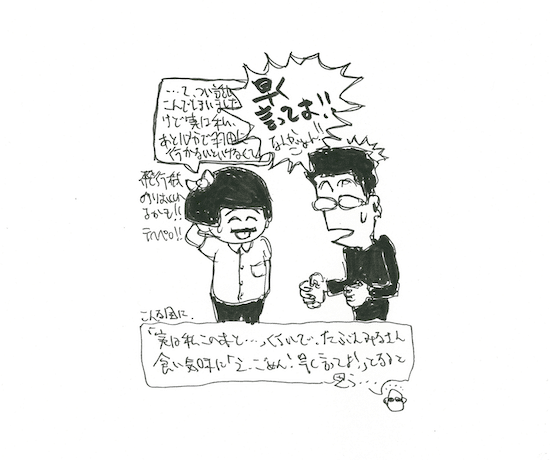 …て、つい話し
こんでしまいました
けど実は私、
あと1分で羽田に
行かないといけなくて
早く
言ってよ!!
なんかごめん!!
飛行機
のりおくれ
るかも!!
テヘペロ!!
こんな風に、
「実は私この来と…」くらいで、たぶんみるさん
食い気味に「え、ごめん!早く言ってよ!」ってなると
思う…